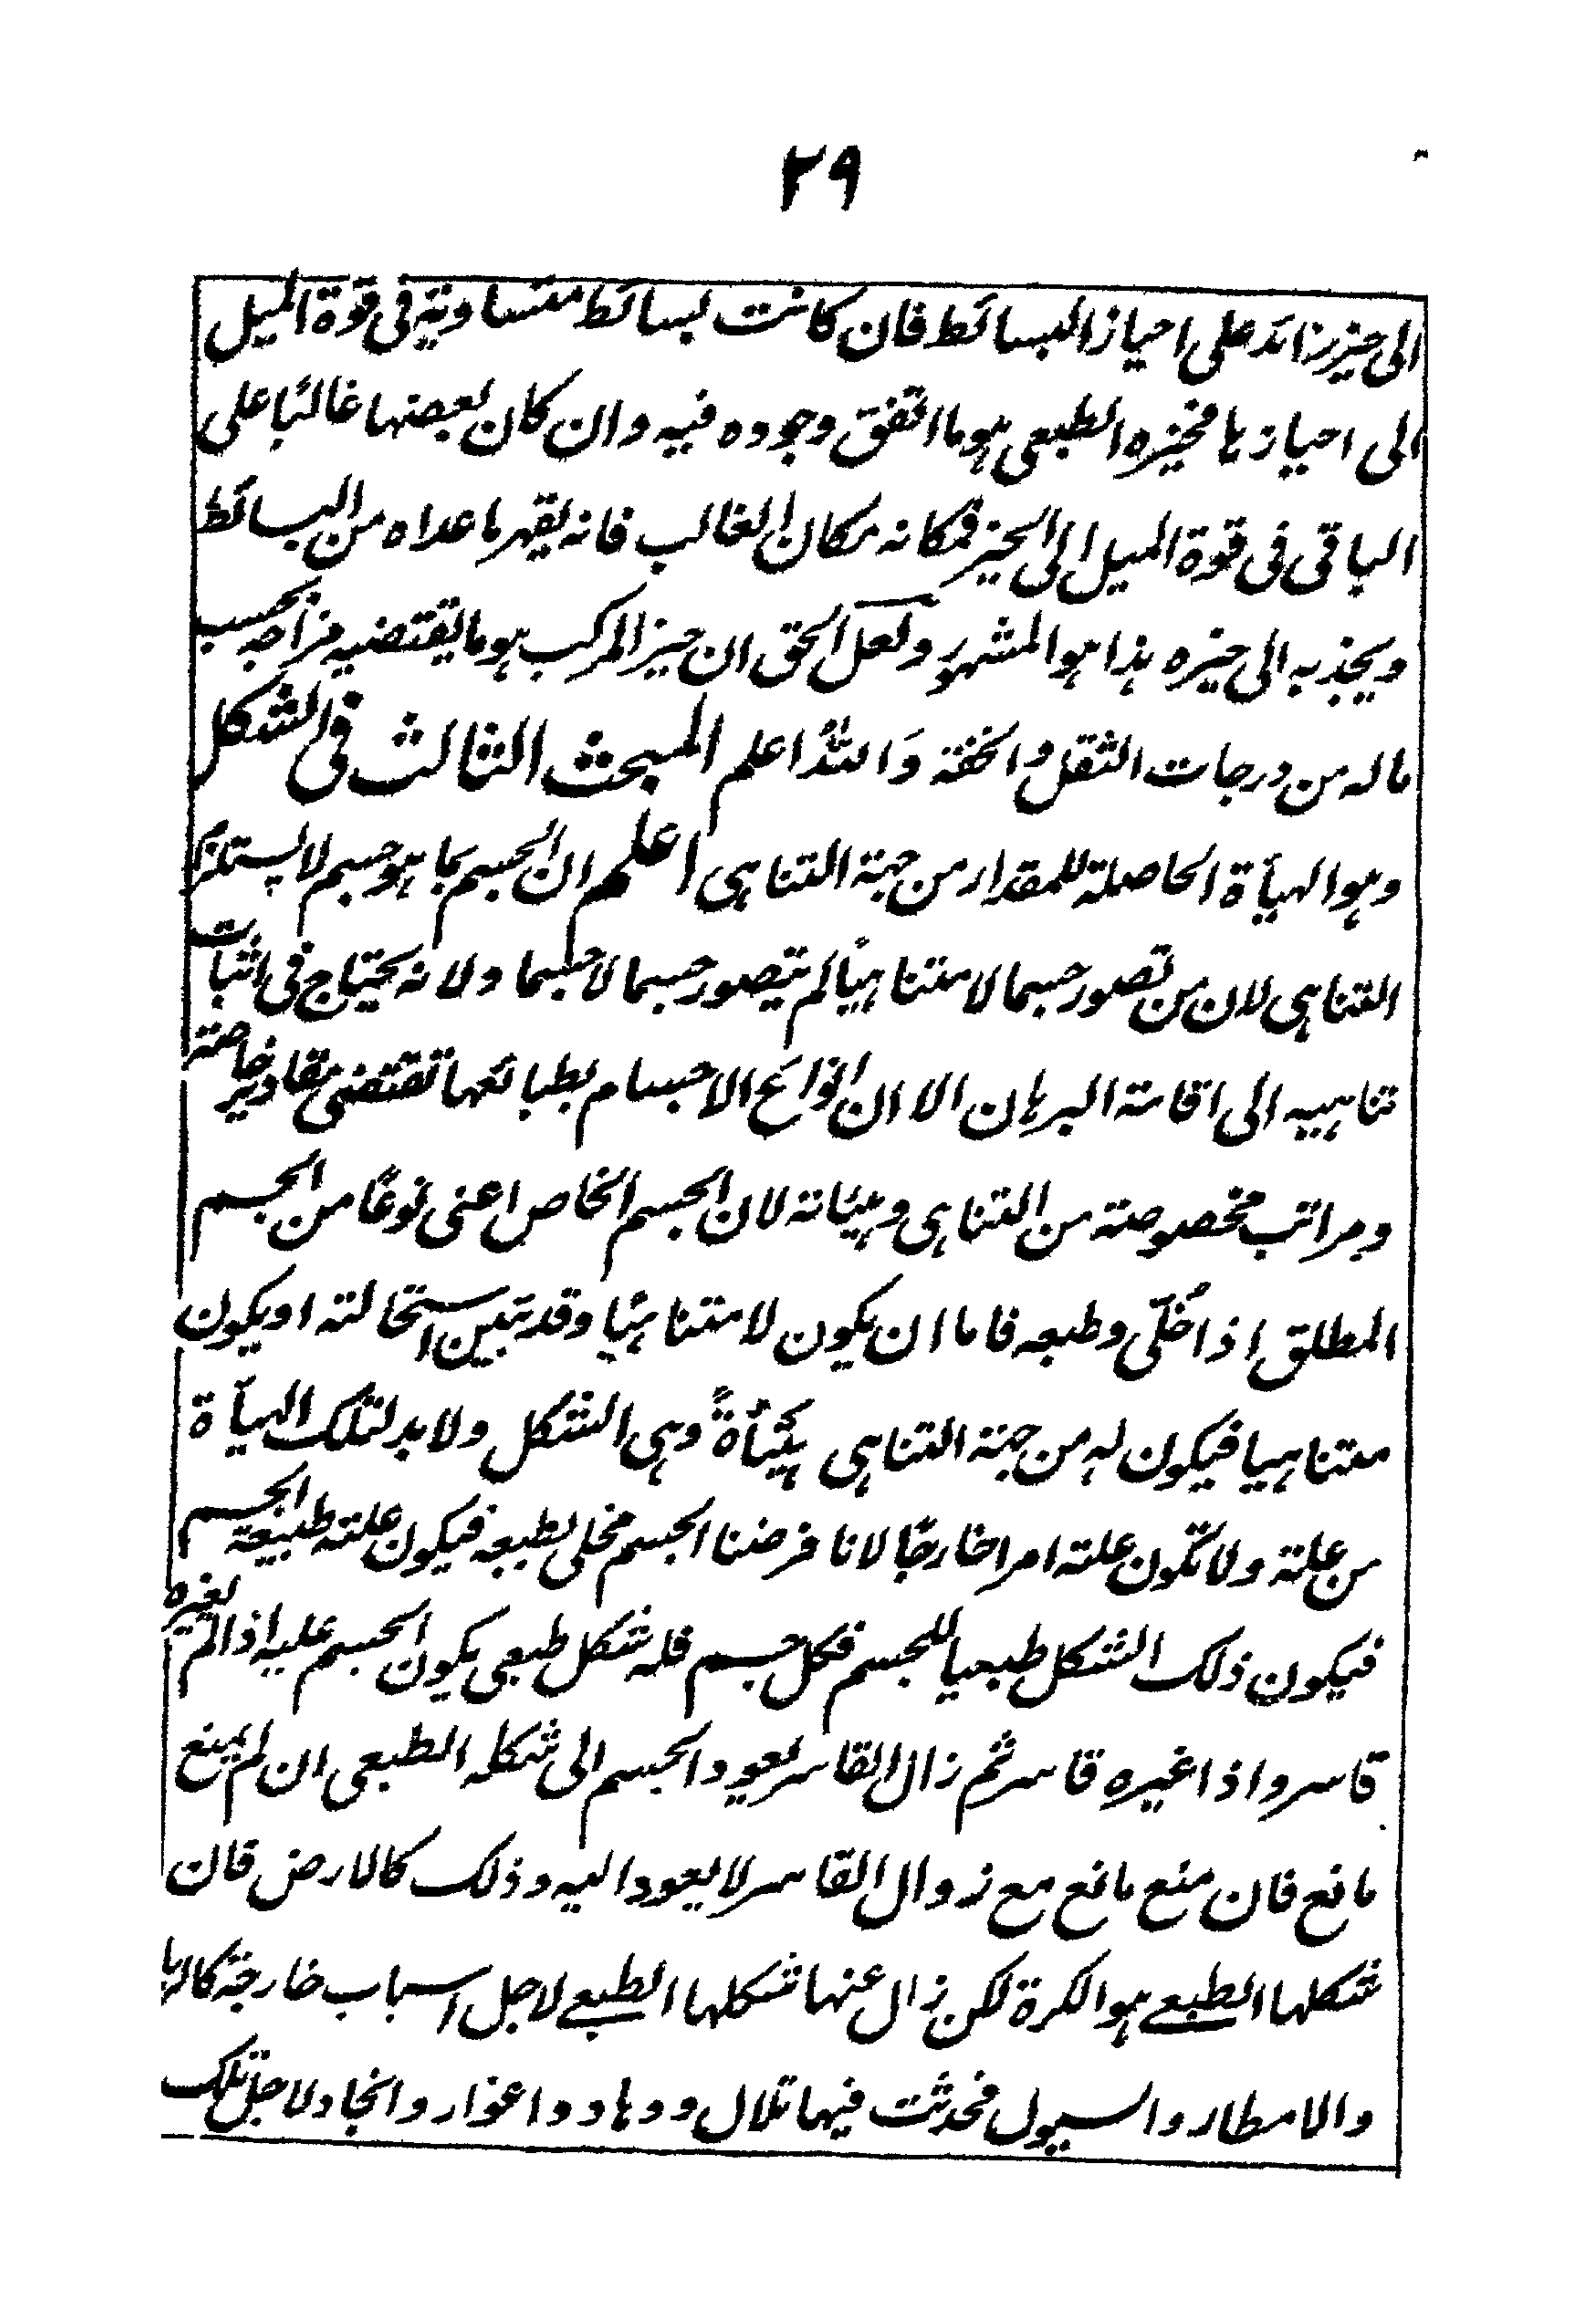 ٢٩
الى حيز زائد على احياز البسائط فان كانت بسائط متساوية فى قوة الميل
الى احيازها فحيزه الطبعى هو ما اتفق وجوده فيه وان كان بعضها غالبًا على
الباقى فى قوة الميل الى الحيز فمكانه مكان الغالب فانه يقهر ما عداه من البسائط
ويجذبه الى حيزه هذا هو المشهور ولعل الحق ان حيز المركب هو ما يقتضيه مزاجه بحسب
ما له من درجات الثقل والخفة وَاللّٰهُ اعلم المبحث الثالث فى الشكل
وهو الهيأة الحاصلة للمقدار من جهة التناهى اعلم ان الجسم بما هو جسم لا يستلزم
التناهى لان من تصور جسما لا متناهيًا لم يتصور جسما لا جسما ولانه يحتاج فى اثبات
تناهيه الى اقامة البرهان الا ان انواع الاجسام بطبائعها تقتضى مقادير خاصة
ومراتب مخصوصة من التناهى وهيئاته لان الجسم الخاص اعنى نوعًا من الجسم
المطلق اذا خُلّى وطبعه فاما ان يكون لا متناهيًا وقد تبين استحالته او يكون
متناهيا فيكون له من جهة التناهى هَيْأةً وهى الشكل ولا بد لتلك الهيأة
من علة ولا تكون علته امرا خارجًا لانا فرضنا الجسم مخلى بطبعه فيكون علته طبيعة الجسم
فيكون ذلك الشكل طبعيا للجسم فكل جسم فله شكل طبعى يكون الجسم عليه اذا لم يغيره
قاسر واذا غيره قاسر ثم زال القاسر يعود الجسم الى شكله الطبعى ان لم يمنع
مانع فان منع مانع مع زوال القاسر لا يعود اليه وذلك كالارض فان
شكلها الطبعے هو الكرة لكن زال عنها شكلها الطبعے لاجل اسباب خارجة كالريا
والامطار والسيول فحدثت فيها تلال ووهاد واغوار وانجاد لاجل تلك